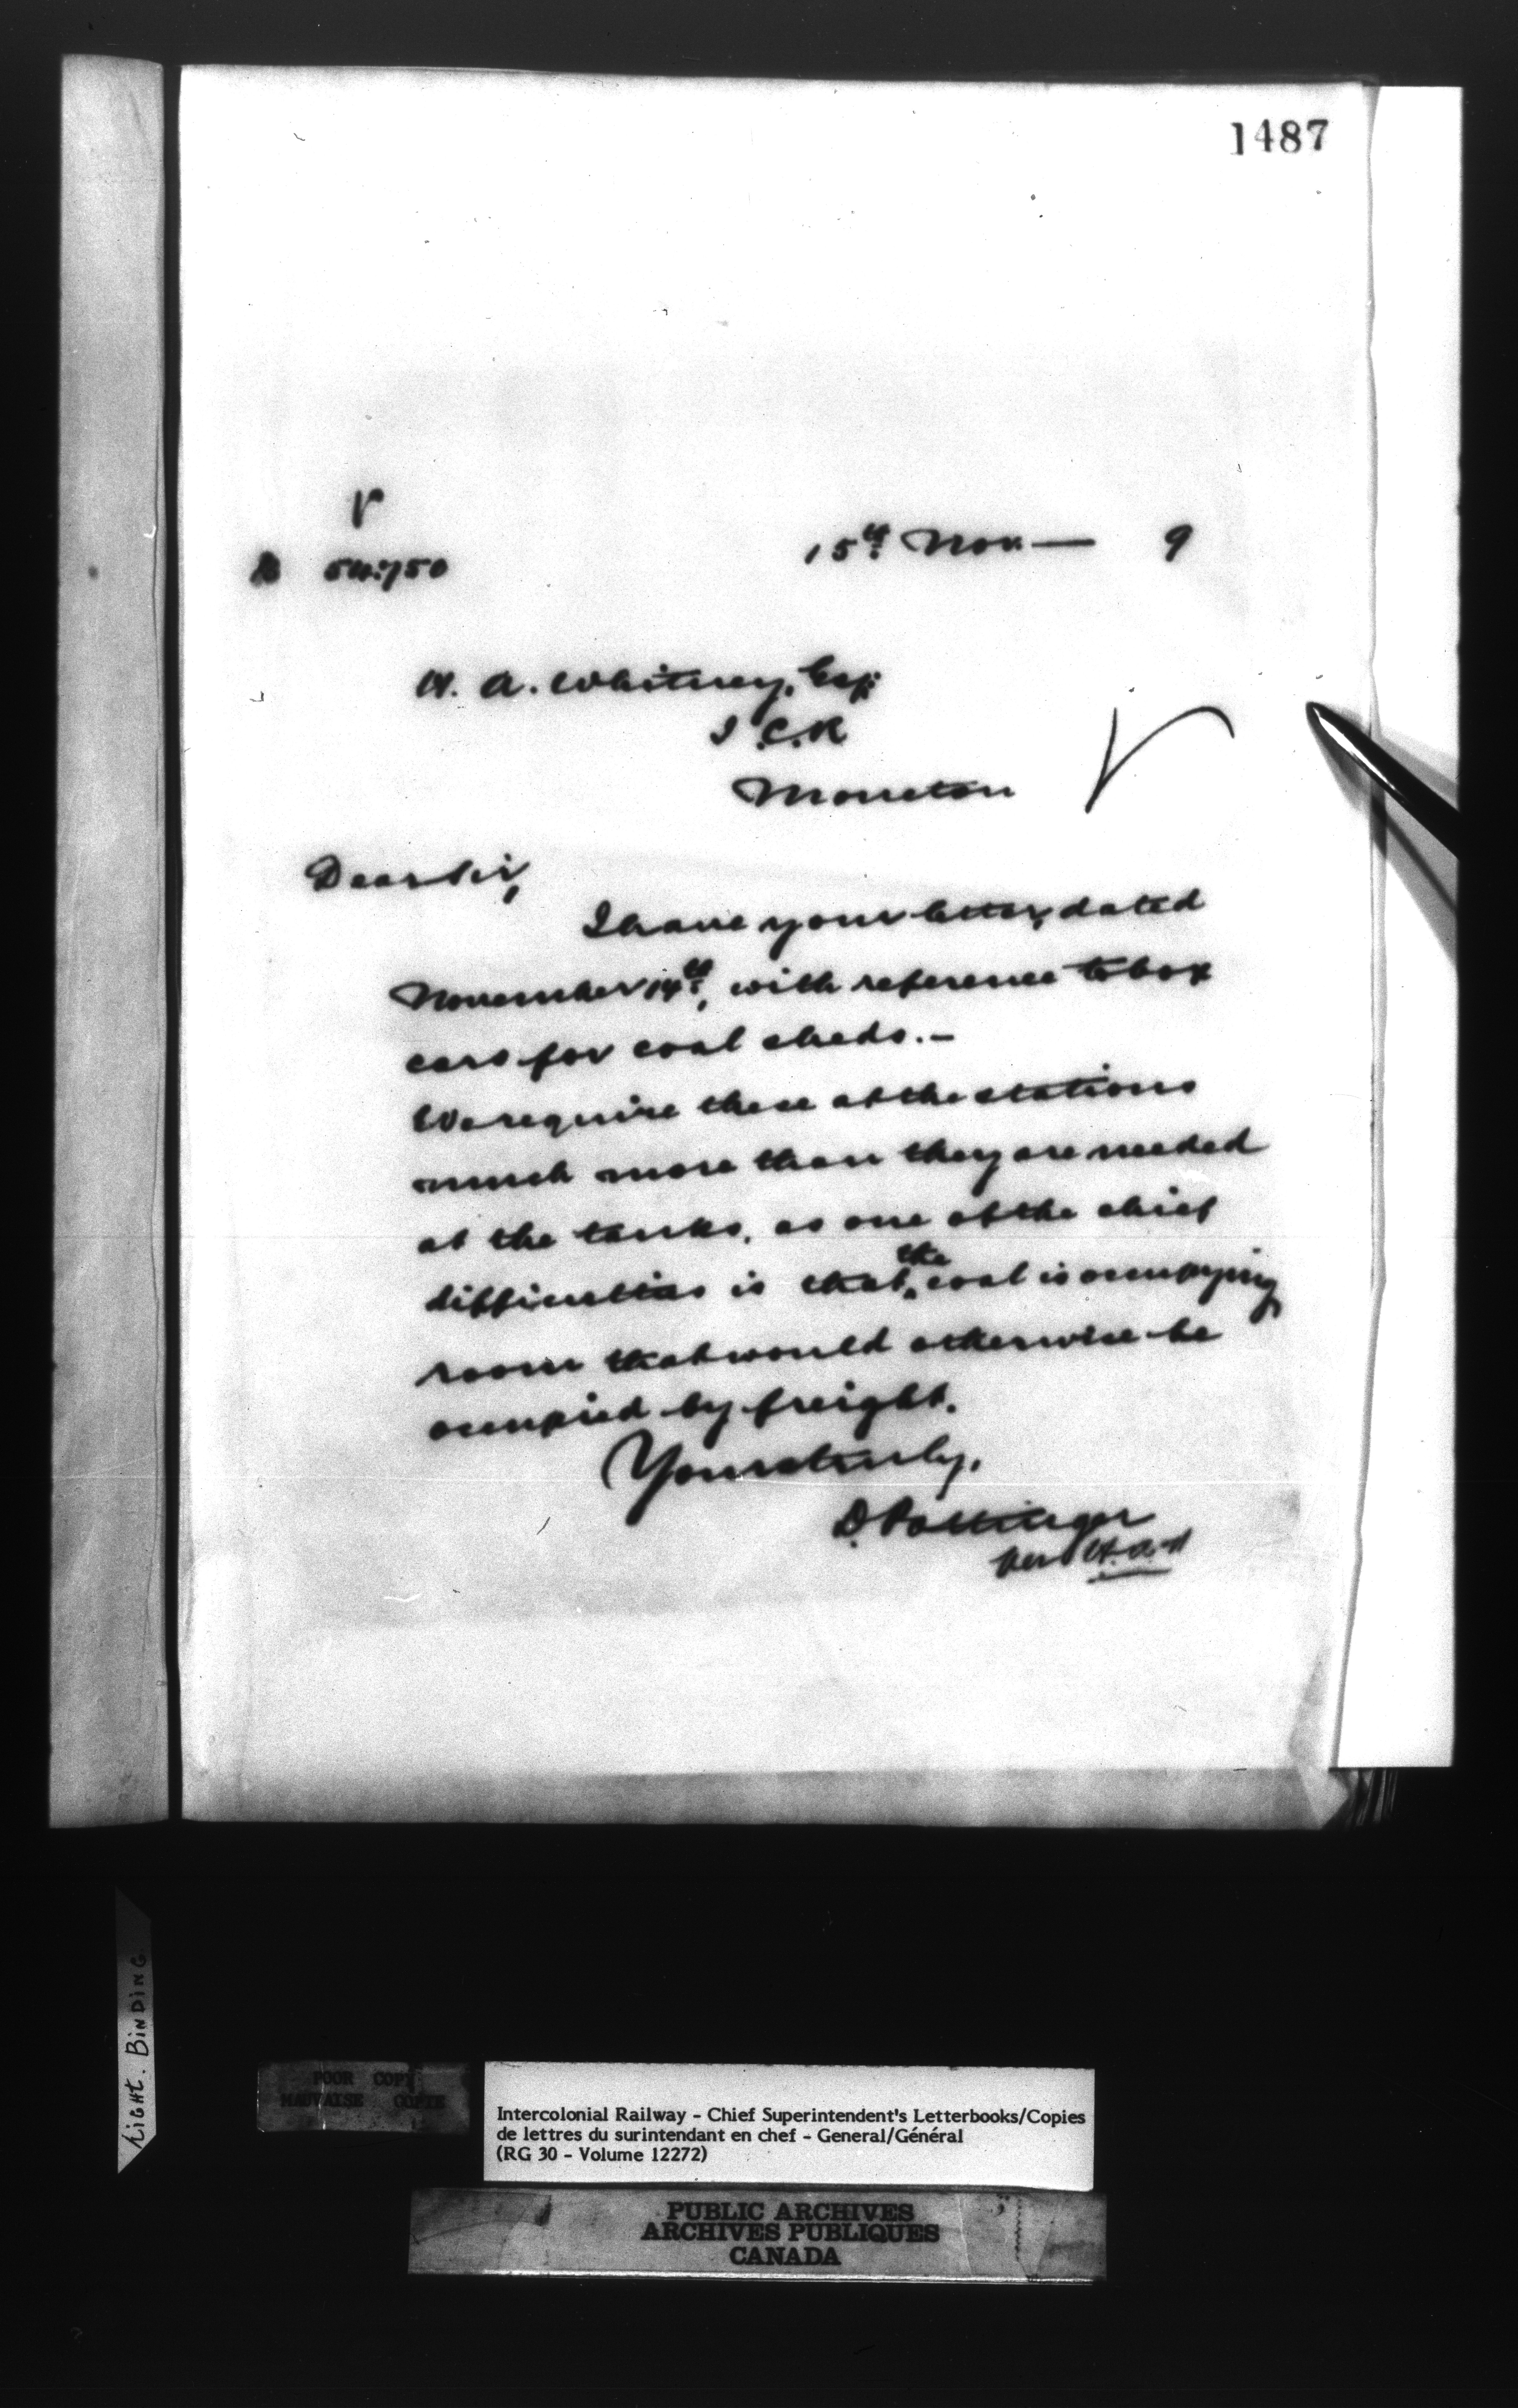 1487
54750
15th Nov — 9
H. A. Whitney, Esq:
I.C.R
Moncton
Dear Sir,
I have your letter, dated
November 14th, with reference to box
cars for coal sheds.-
We require these at the stations
much more than they are needed
at the tanks, as one of the chief
the
difficulties is that coal is occupying
room that would otherwise be
occupied by freight.
Yours truly,
D. Pottinger
per
LIGHT. BINDING
POOR COPY
MAUVAISE COPIE
Intercolonial Railway - Chief Superintendent's Letterbooks/Copies
de lettres du surintendant en chef - General/Général
(RG 30 - Volume 12272)
PUBLIC ARCHIVES
ARCHIVES PUBLIQUES
CANADA